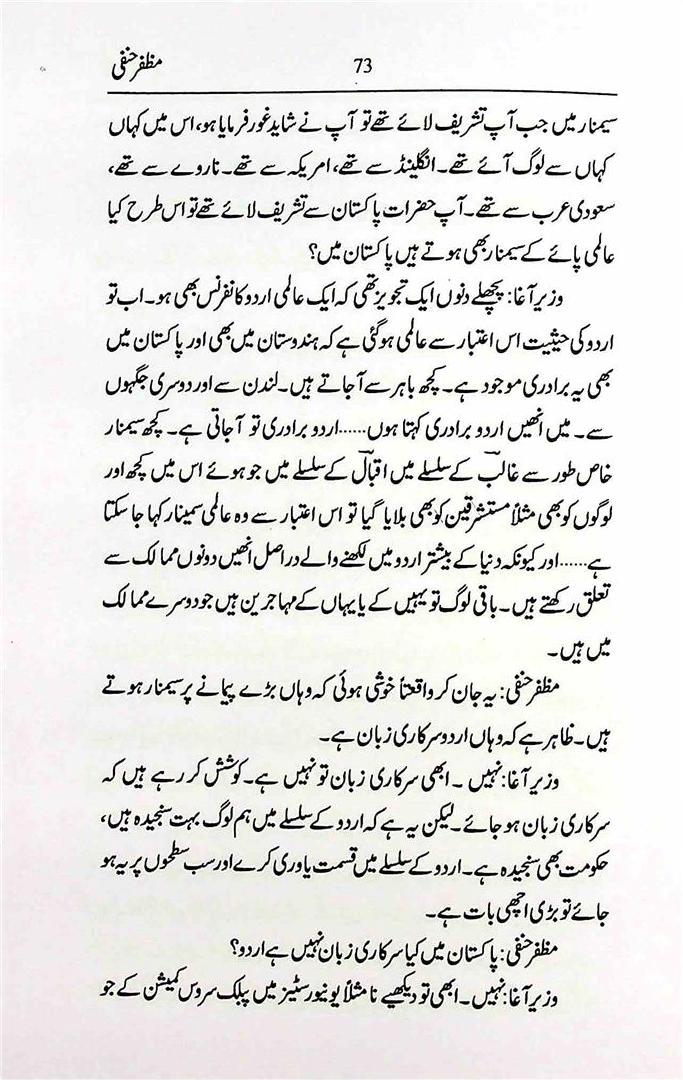 مظفر حنفی 73
سیمنار میں جب آپ تشریف لائے تھے تو آپ نے شاید غور فرمایا ہو، اس میں کہاں
کہاں سے لوگ آئے تھے۔ انگلینڈ سے تھے، امریکہ سے تھے۔ ناروے سے تھے،
سعودی عرب سے تھے۔ آپ حضرات پاکستان سے تشریف لائے تھے تو اس طرح کیا
عالمی پائے کے سیمنار بھی ہوتے ہیں پاکستان میں؟
وزیر آغا: پچھلے دنوں ایک تجویز تھی کہ ایک عالمی اردو کانفرنس بھی ہو۔ اب تو
اردو کی حیثیت اس اعتبار سے عالمی ہوگئی ہے کہ ہندوستان میں بھی اور پاکستان میں
بھی یہ برادری موجود ہے۔ کچھ باہر سے آجاتے ہیں۔ لندن سے اور دوسری جگہوں
سے۔ میں انھیں اردو برادری کہتا ہوں......اردو برادری تو آجاتی ہے۔ کچھ سیمنار
خاص طور سے غالبؔ کے سلسلے میں اقبالؔ کے سلسلے میں جو ہوئے اس میں کچھ اور
لوگوں کو بھی مثلاً مستشرقین کو بھی بلایا گیا تو اس اعتبار سے وہ عالمی سمینار کہا جاسکتا
ہے......اور کیونکہ دنیا کے بیشتر اردو میں لکھنے والے دراصل انھیں دونوں ممالک سے
تعلق رکھتے ہیں۔ باقی لوگ تو یہیں کے یا یہاں کے مہاجرین ہیں جو دوسرے ممالک
میں ہیں۔
مظفر حنفی: یہ جان کر واقعتاً خوشی ہوئی کہ وہاں بڑے پیمانے پر سیمنار ہوتے
ہیں۔ ظاہر ہے کہ وہاں اردو سرکاری زبان ہے۔
وزیر آغا: نہیں ۔ ابھی سرکاری زبان تو نہیں ہے۔ کوشش کر رہے ہیں کہ
سرکاری زبان ہو جائے۔ لیکن یہ ہے کہ اردو کے سلسلے میں ہم لوگ بہت سنجیدہ ہیں،
حکومت بھی سنجیدہ ہے۔ اردو کے سلسلے میں قسمت یاوری کرے اور سب سطحوں پر یہ ہو
جائے تو بڑی اچھی بات ہے۔
مظفر حنفی: پاکستان میں کیا سرکاری زبان نہیں ہے اردو؟
وزیر آغا: نہیں۔ ابھی تو دیکھیے نا مثلاً یونیورسٹیز میں پبلک سروس کمیشن کے جو